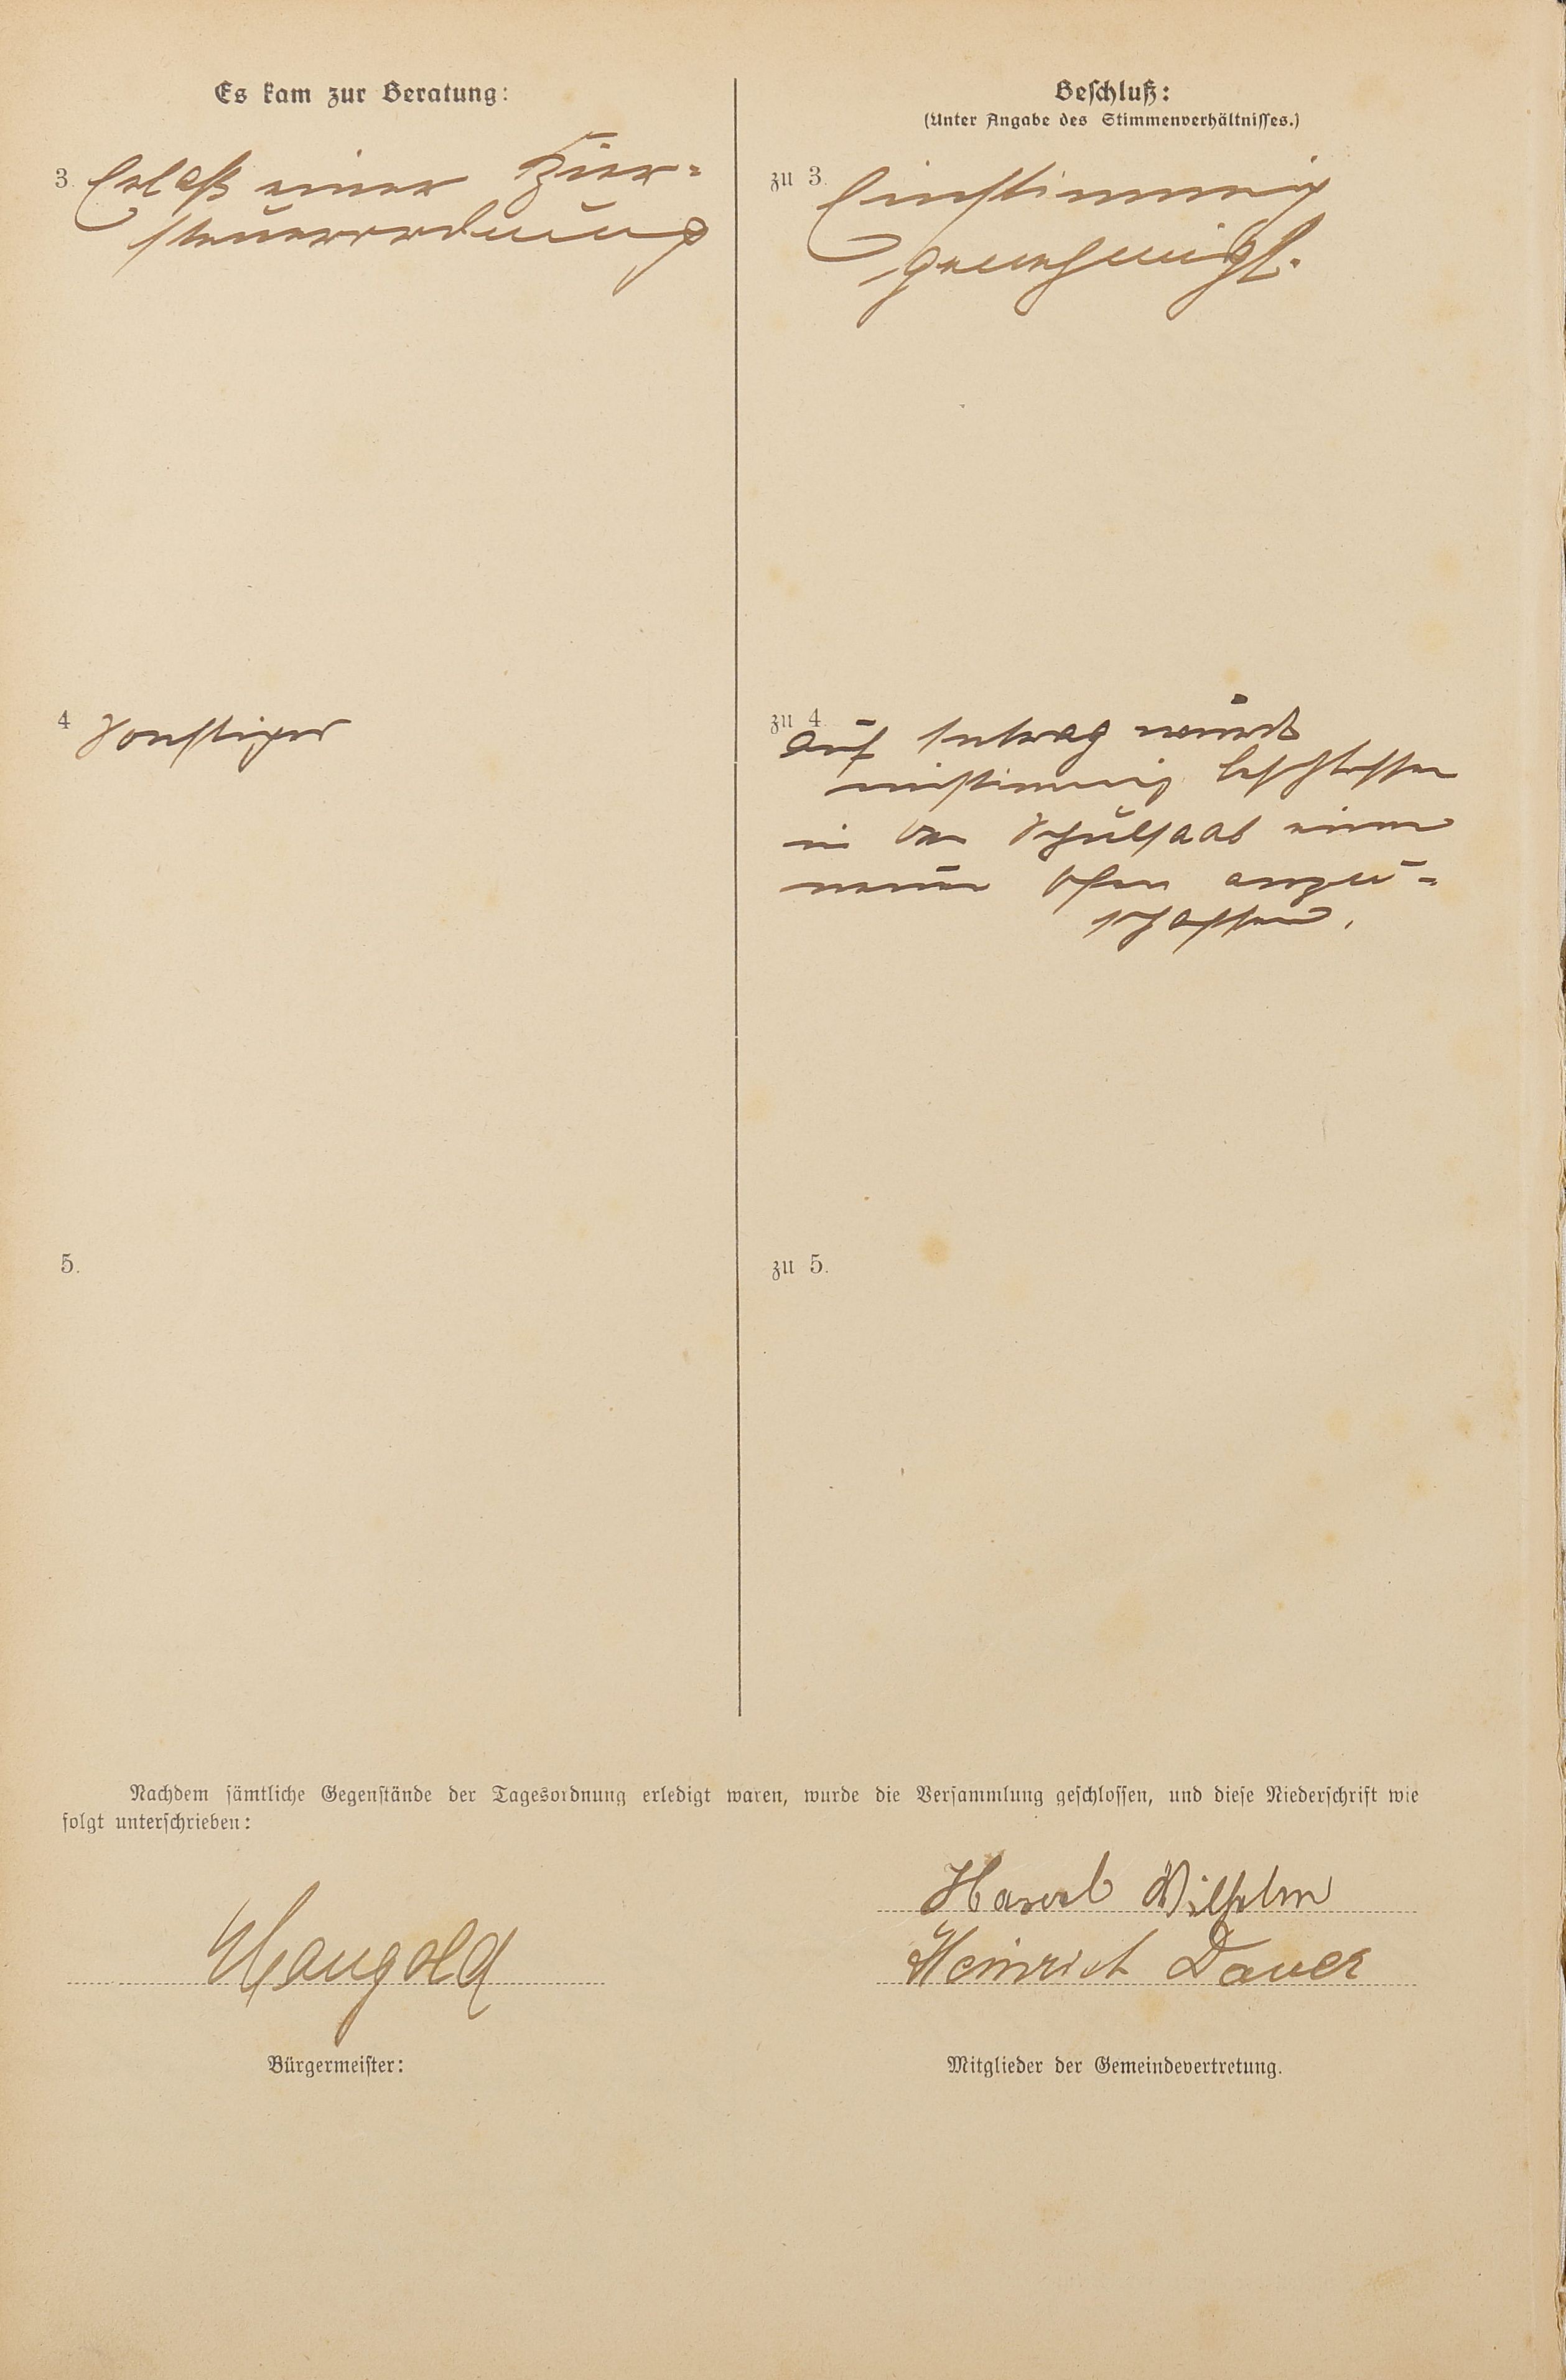 Es kam zur Beratung:
3. Erlaß einer Bier=
steuerordnung
4 Sonstiges
5.
Beschluß:
(Unter Angabe des Stimmenverhältnisses.)
zu 3. Einstimmig
genehmigt.
zu 4.
Auf Antrag wurde
einstimmig beschlossen
in den Schulsaal einen
neuen Ofen anzu=
schaffen.
zu 5.
Nachdem sämtliche Gegenstände der Tagesordnung erledigt waren, wurde die Versammlung geschlossen, und diese Niederschrift wie
folgt unterschrieben:
Mangold
Bürgermeister:
Wilhelm
Heinrich Dauer
Mitglieder der Gemeindevertretung.